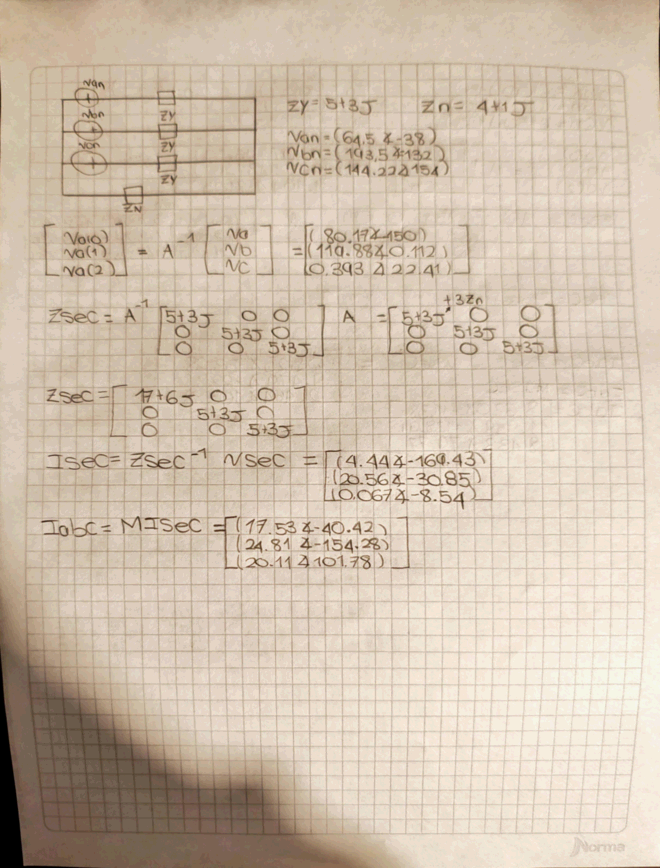 Van
Vbn
Vcn
ZY
ZY
ZY
ZN
ZY = 5+3J Zn = 4+1J
Van = (64,5 ∡-38)
Vbn = (193,5∡-132)
VCn = (144.22∡154)
[Va(0) Va(1) Va(2)] = A⁻¹ [Va Vb VC] = [(80.17∡150) (119.88∡0.112) (0.393 ∡22.41)]
Zsec = A⁻¹ [5+3J 0 0
0 5+3J 0
0 0 5+3J] A = [5+3J +3Zn 0 0
0 5+3J 0
0 0 5+3J]
Zsec = [17+6J 0 0
0 5+3J 0
0 0 5+3J]
Isec = Zsec⁻¹ Vsec = [(4.44∡-169.43)
(20.56∡-30.85)
(0.067∡-8.54)]
Iabc = MIsec = [(17.53∡-40.42)
(24.81 ∡-154.28)
(20.11∡101.78)]
Norma